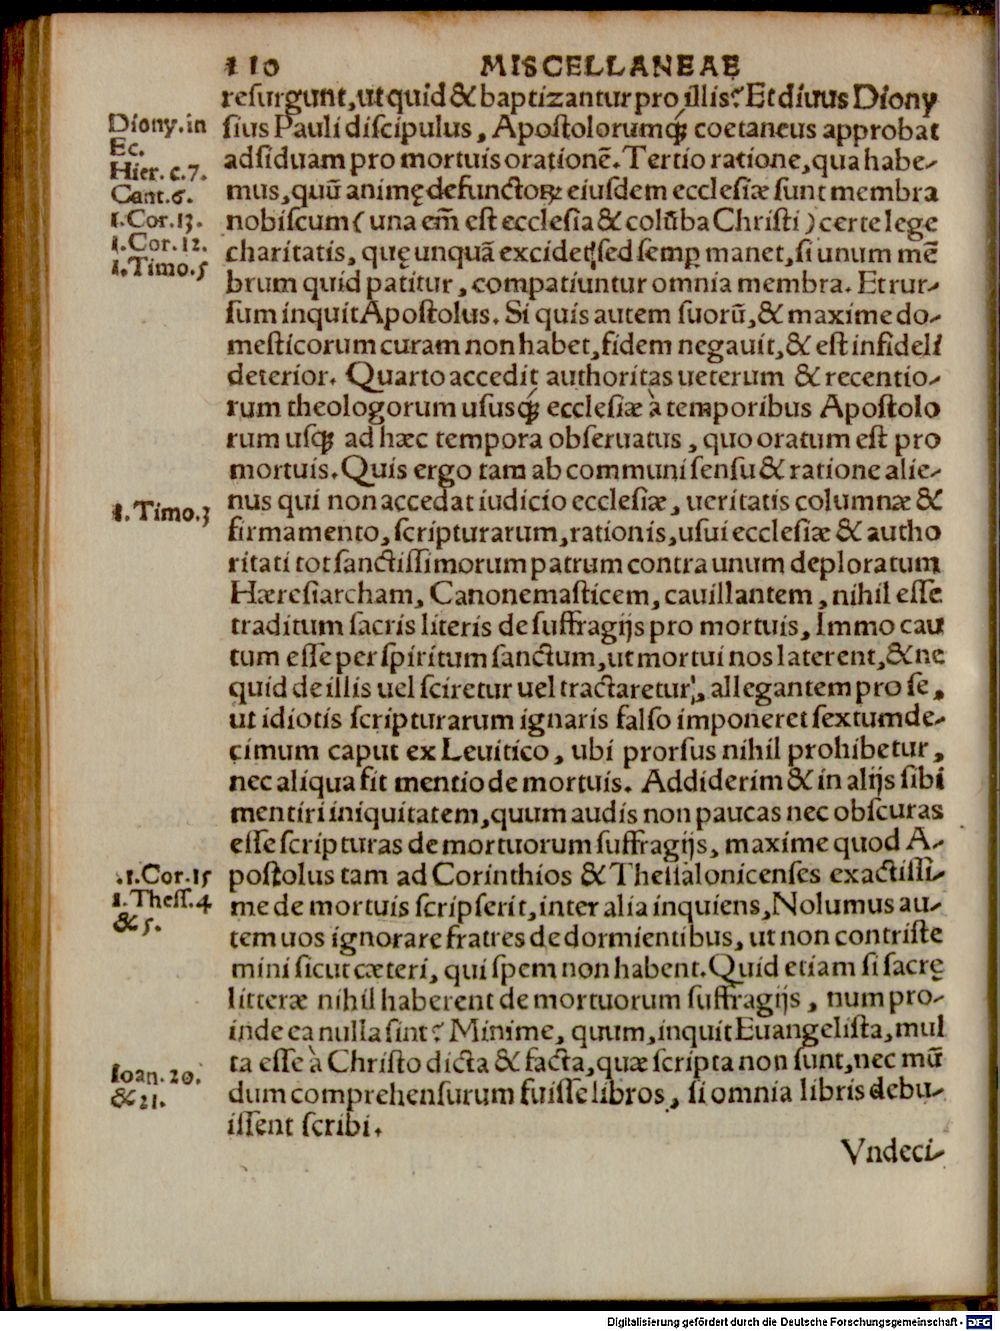 110 MISCELLANEAE
resurgunt, ut quid & baptizantur pro illis? Et diuus Diony
Diony. in
Ec.
Hier. c. 7.
Cant. 6.
1. Cor. 13.
1. Cor. 12.
1. Timo. 5
sius Pauli discipulus, Apostolorumqꝫ coetaneus approbat
adsiduam pro mortuis orationē. Tertio ratione, qua habe-
mus, quū animę defunctoꝝ eiusdem ecclesiæ sunt membra
nobiscum (una em̄ est ecclesia & colūba Christi) certe lege
charitatis, quę unquā excidet, sed semꝑ manet, si unum mē
brum quid patitur, compatiuntur omnia membra. Et rur-
sum inquit Apostolus. Si quis autem suorū, & maxime do-
mesticorum curam non habet, fidem negauit, & est infideli
deterior. Quarto accedit authoritas ueterum & recentio-
rum theologorum ususqꝫ ecclesiæ à temporibus Apostolo
rum usqꝫ ad hæc tempora obseruatus, quo oratum est pro
mortuis. Quis ergo tam ab communi sensu & ratione alie-
1. Timo. 3
nus qui non accedat iudicio ecclesiæ, ueritatis columnæ &
firmamento, scripturarum, rationis, usui ecclesiæ & autho
ritati tot sanctissimorum patrum contra unum deploratum
Hæresiarcham, Canonemasticem, cauillantem, nihil esse
traditum sacris literis de suffragijs pro mortuis, Immo cau
tum esse per spiritum sanctum, ut mortui nos laterent, & ne
quid de illis uel sciretur uel tractaretur, allegantem pro se,
ut idiotis scripturarum ignaris falso imponeret sextumde-
cimum caput ex Leuitico, ubi prorsus nihil prohibetur,
nec aliqua fit mentio de mortuis. Addiderim & in alijs sibi
mentiri iniquitatem, quum audis non paucas nec obscuras
esse scripturas de mortuorum suffragijs, maxime quod A-
1. Cor. 15
1. Thess. 4
& 5.
postolus tam ad Corinthios & Thessalonicenses exactissi-
me de mortuis scripserit, inter alia inquiens, Nolumus au-
tem uos ignorare fratres de dormientibus, ut non contriste
mini sicut cæteri, qui spem non habent. Quid etiam si sacrę
litteræ nihil haberent de mortuorum suffragijs, num pro-
inde ea nulla sint? Minime, quum, inquit Euangelista, mul
Ioan. 20.
& 21.
ta esse à Christo dicta & facta, quæ scripta non sunt, nec mū
dum comprehensurum fuisse libros, si omnia libris debu-
issent scribi.
Vndeci-
Digitalisierung gefördert durch die Deutsche Forschungsgemeinschaft - DFG